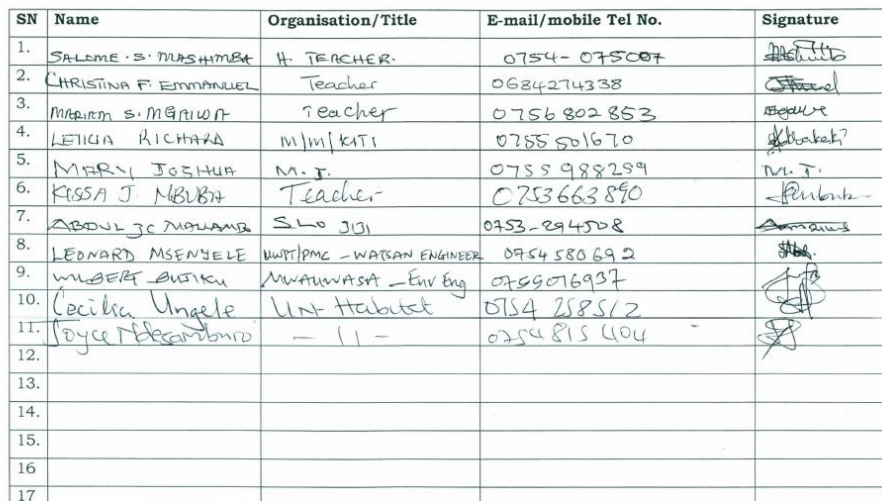 SN Name Organisation/Title E-mail/mobile Tel No. Signature
1. SALOME . S. MASHIMBA H. TEACHER. 0754-075007
2. CHRISTINA F. EMMANUEL Teacher 0684274338
3. MARIAM S. MGAIWA Teacher 0756 802 853
4. LETICIA RICHARD M/M/KITI 0755 501670
5. MARY JOSHUA M.J. 0755 988259 M.J.
6. KISSA J. MBUBA Teacher 0753663890
7. ABDUL SLO JIJI 0753-294508
8. LEONARD MSENYELE UWPT/PMC - WATSAN ENGINEER 0754 580692
9. WILBERT BUJIKU MWAUWASA - Env Eng 0755016937
10. Cecilia Ungele UN-Habitat 0754 258512
11. Joyce Ndesamburo - 11 - 0754 815 404
12.
13.
14.
15.
16
17